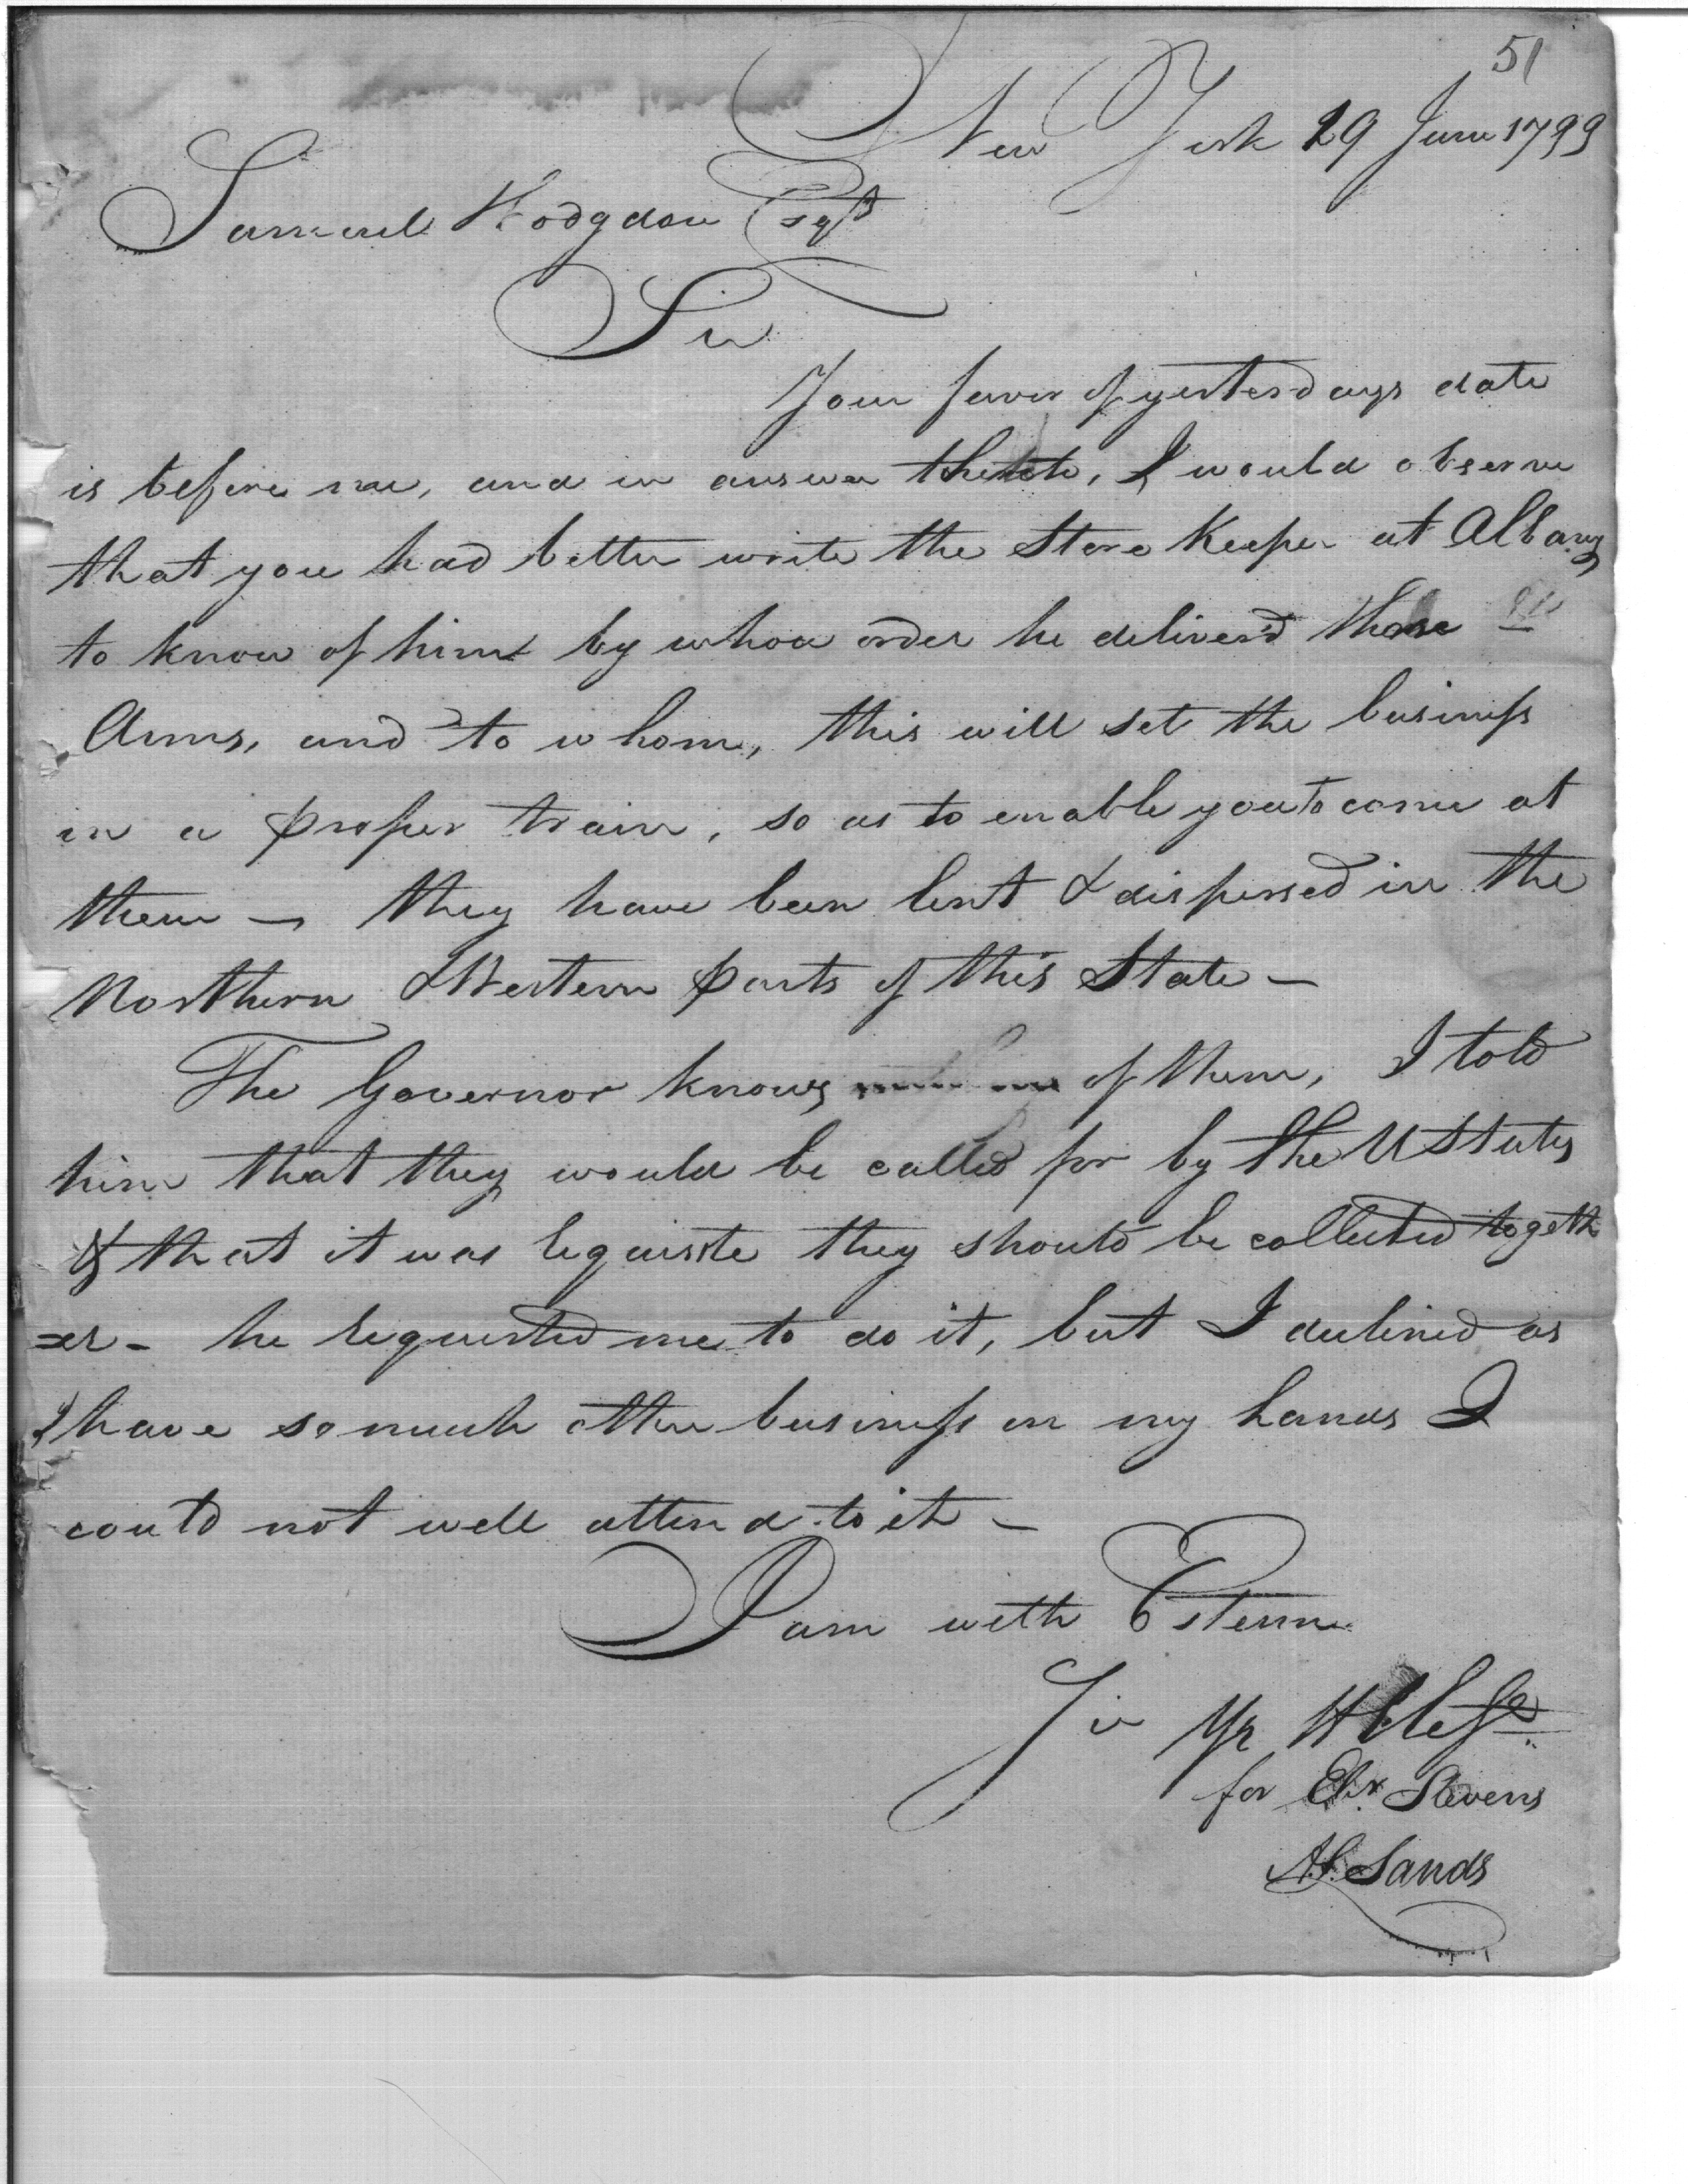 51
New York 29 June 1799
Samuel Hodgdon Esqr
Sir
Your favor of yesterdays date
is before me, and in answer thereto, I would observe
that you had better write the Store Keeper at Albany
to know of him by whoa order he deliver'd those
Arms, and to whom, this will set the business
in a proper train, so as to enable you to come at
them — they have been lent & dispersed in the
Northern & Western parts of this State —
The Governor knows of them, I told
him that they would be called for by the U States
& that it was requisite they should be collected togeth
=er - he requested me to do it, but I declined as
I have so much other business on my hands I
could not well attend to it —
I am with Esteem
Sir Yr
for Ebr Stevens
Sands